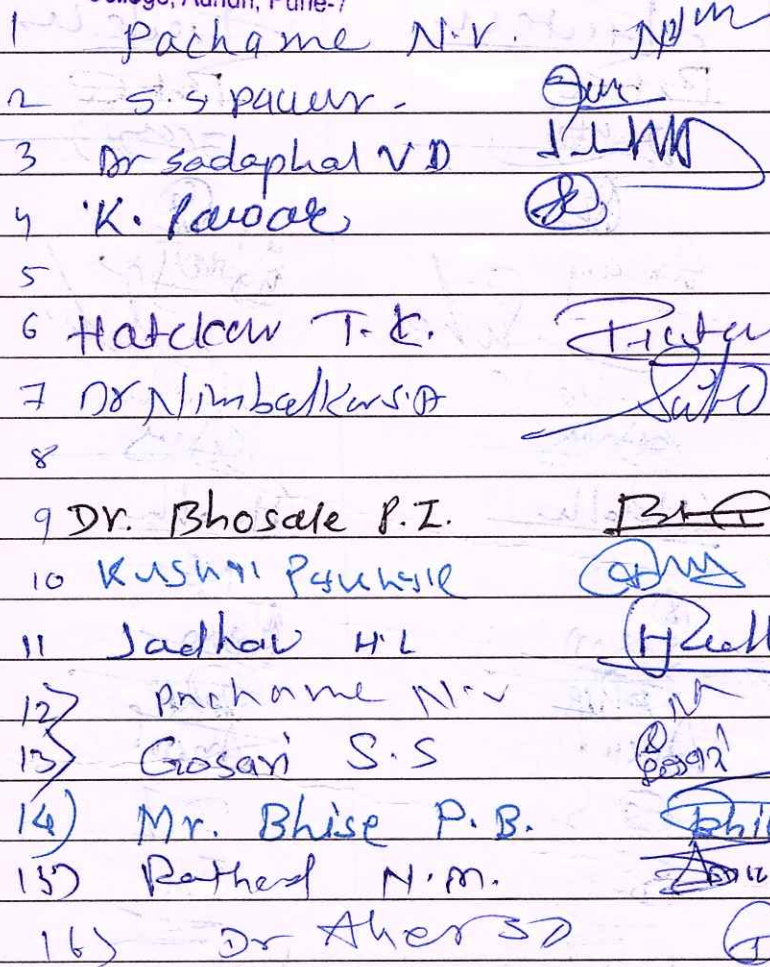 College, Aundh, Pune-7
1 Pachame N.V.
2 S.S pawar -
3 Dr Sadaphal V D
4 K. Pawar
5
6 Hatekar T. K.
7 Dr Nimbalkar S.A
8
9 Dr. Bhosale P.I.
10
11 Jadhav H.L
12) Pachame N.V
13) Gosavi S.S
14) Mr. Bhise P.B.
15) Rathod N.M.
16) Dr Aher SD